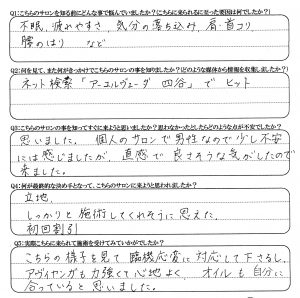 Q1:こちらのサロンを知る前にどんな事で悩んでいましたか?こちらに来られるに至った要因は何でしたか?
不眠、疲れやすさ、気分の落ち込み、肩・首コリ
腰のはり など
Q2:何を見て、また何がきっかけでこちらのサロンの事を知りましたか?(どのような媒体から情報を収集しましたか?)
ネット検索「アーユルヴェーダ 四谷」で ヒット
Q3:こちらのサロンの事を知ってすぐに来ようと思いましたか?思わなかったとしたらどのような点が不安でしたか?
思いました。個人のサロンで男性なので少し不安
には感じましたが、直感で良さそうな気がしたので
来ました。
Q4:何が最終的な決め手となって、こちらのサロンに来ようと思われましたか?
立地、
しっかりと施術してくれそうに思えた、
初回割引
Q5:実際こちらに来られて施術を受けてみていかがでしたか?
こちらの様子を見て臨機応変に対応して下さるし、
アヴィヤンガも力強くて心地よく、オイルも自分に
合っていると思いました。